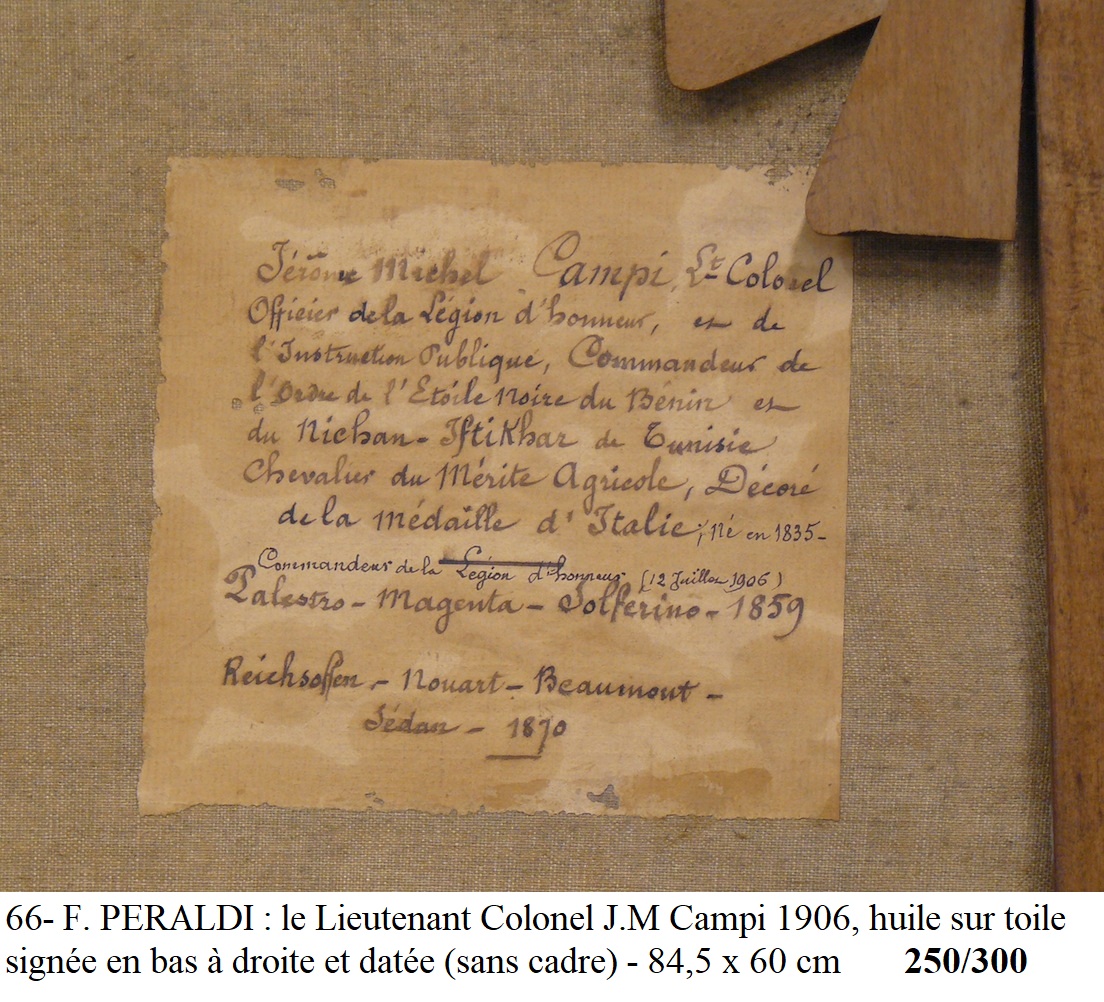 Jérôme Michel Campi, Lt Colonel
Officier de la Légion d'honneur, et de
l'Instruction Publique, Commandeur de
l'Ordre de l'Etoile Noire du Bénin et
du Nichan-Iftikhar de Tunisie
Chevalier du Mérite Agricole, Décoré
de la médaille d'Italie; Né en 1835-
Commandeur de la Légion d'honneur (12 Juillet 1906)
Palestro - Magenta - Solferino - 1859
Reichsoffen - Nouart - Beaumont -
Sédan - 1870
66- F. PERALDI : le Lieutenant Colonel J.M Campi 1906, huile sur toile
signée en bas à droite et datée (sans cadre) - 84,5 x 60 cm 250/300